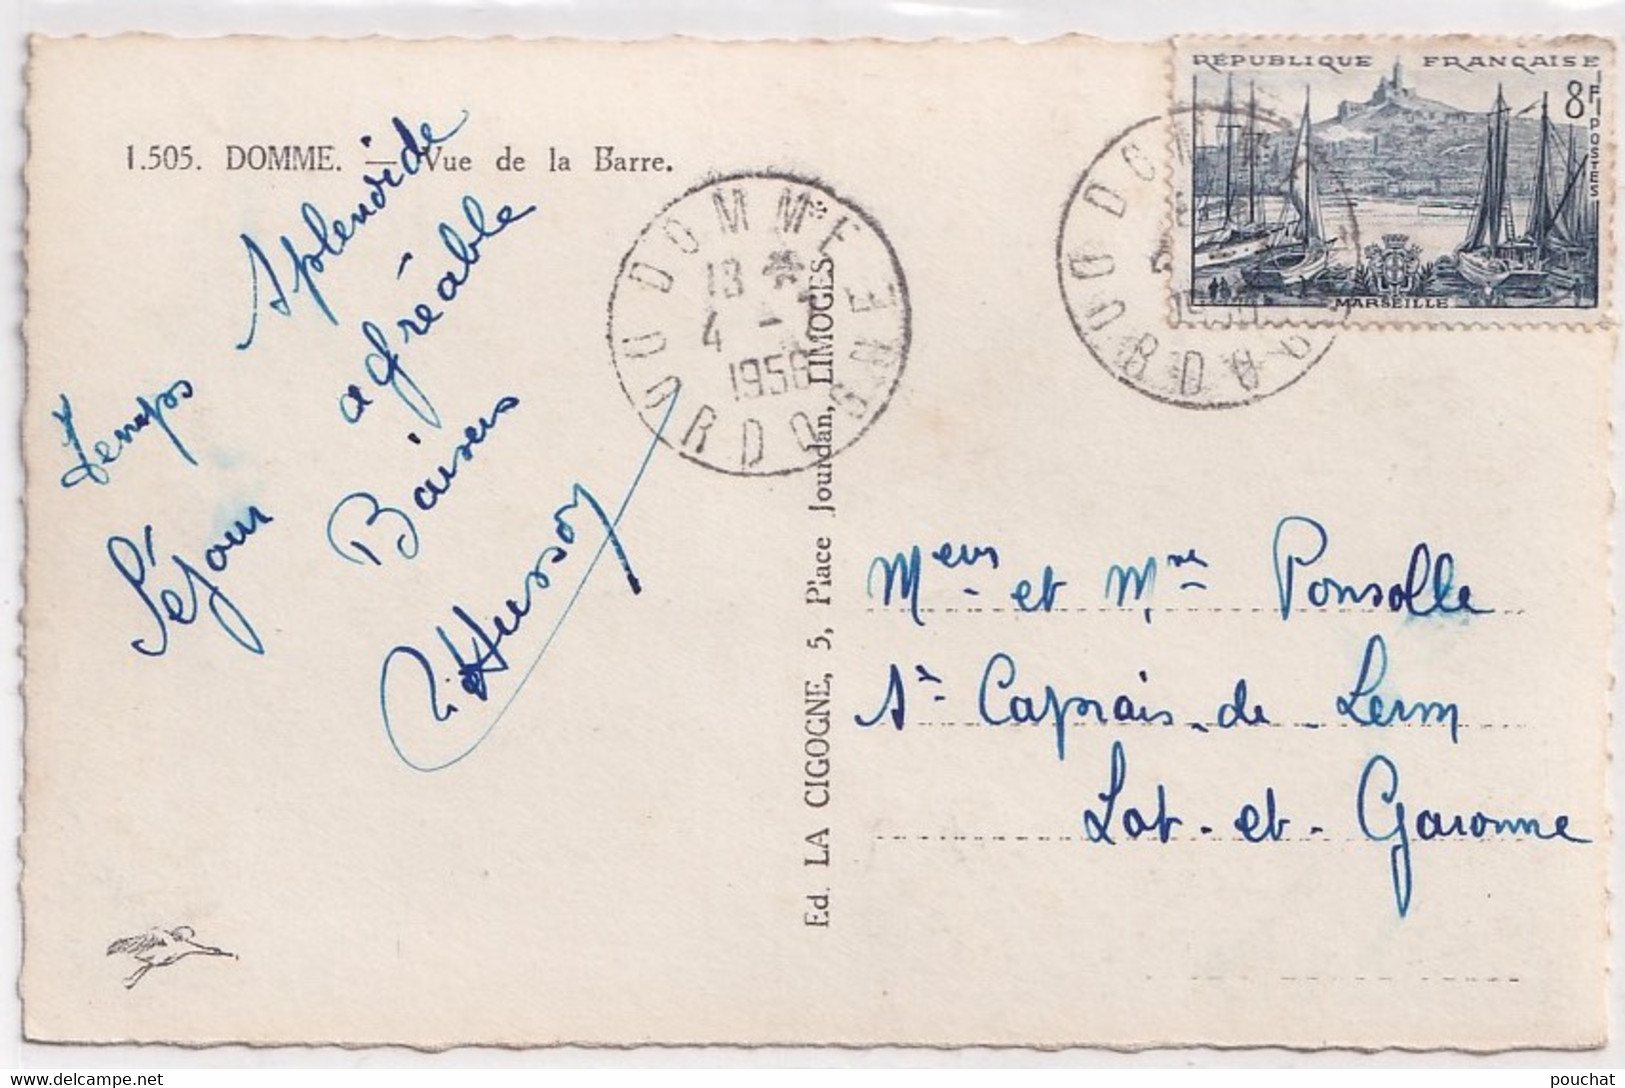 1.505. DOMME. — Vue de la Barre.
Temps splendide
Séjour agréable
Baisers
Husson
DOMME
18
4 -
1956
DORDOGNE
Ed. LA CIGOGNE, 5, Place Jourdan, LIMOGES
RÉPUBLIQUE FRANÇAISE
8F
POSTES
MARSEILLE
Meurs et Mme Ponsolle
St Caprais-de-Lerm
Lot-et-Garonne
pouchat